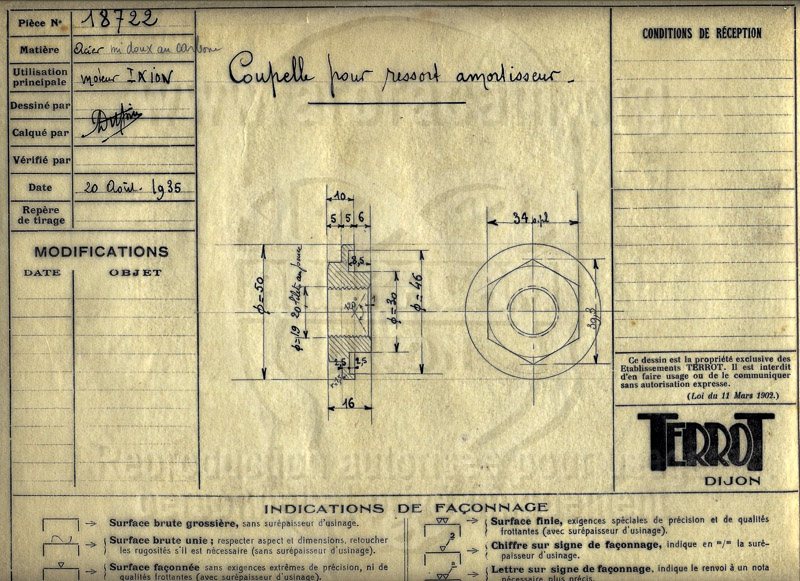 Pièce N° 18722
Matière Acier mi doux au carbone
Utilisation principale moteur IXION
Dessiné par
Calqué par
Vérifié par
Date 20 Août. 1935
Repère de tirage
MODIFICATIONS
DATE OBJET
Coupelle pour ressort amortisseur
10
5 5 6
3,5
φ=50
φ=19 20 filets au pouce
120°
φ=30
φ=46
2,5 2,5
16
34 s.pl
39,3
CONDITIONS DE RÉCEPTION
Ce dessin est la propriété exclusive des
Etablissements TERROT. Il est interdit
d'en faire usage ou de le communiquer
sans autorisation expresse.
(Loi du 11 Mars 1902.)
TERROT
DIJON
INDICATIONS DE FAÇONNAGE
Surface brute grossière, sans surépaisseur d'usinage.
Surface brute unie; respecter aspect et dimensions, retoucher
les rugosités s'il est nécessaire (sans surépaisseur d'usinage).
Surface façonnée sans exigences extrêmes de précision, ni de
qualités frottantes (avec surépaisseur d'usinage).
Surface finie, exigences spéciales de précision et de qualités
frottantes (avec surépaisseur d'usinage).
3
Chiffre sur signe de façonnage, indique en m/m la suré-
paisseur d'usinage.
a
Lettre sur signe de façonnage, indique le renvoi à un nota
nécessaire plus précis.